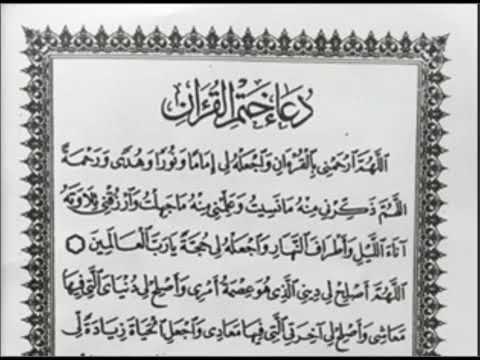 دُعَاءُ خَتْمِ الْقُرْآنِ
اَللّٰهُمَّ ارْحَمْنِي بِالْقُرْءَانِ وَاجْعَلْهُ لِي إِمَامًا وَنُورًا وَهُدًى وَرَحْمَةً
اَللّٰهُمَّ ذَكِّرْنِي مِنْهُ مَا نَسِيتُ وَعَلِّمْنِي مِنْهُ مَا جَهِلْتُ وَارْزُقْنِي تِلَاوَتَهُ
آنَاءَ اللَّيْلِ وَأَطْرَافَ النَّهَارِ وَاجْعَلْهُ لِي حُجَّةً يَارَبَّ الْعَالَمِينَ
اَللّٰهُمَّ أَصْلِحْ لِي دِينِي الَّذِي هُوَ عِصْمَةُ أَمْرِي وَأَصْلِحْ لِي دُنْيَايَ الَّتِي فِيهَا
مَعَاشِي وَأَصْلِحْ لِي آخِرَتِي الَّتِي فِيهَا مَعَادِي وَاجْعَلِ الْحَيَاةَ زِيَادَةً لِي